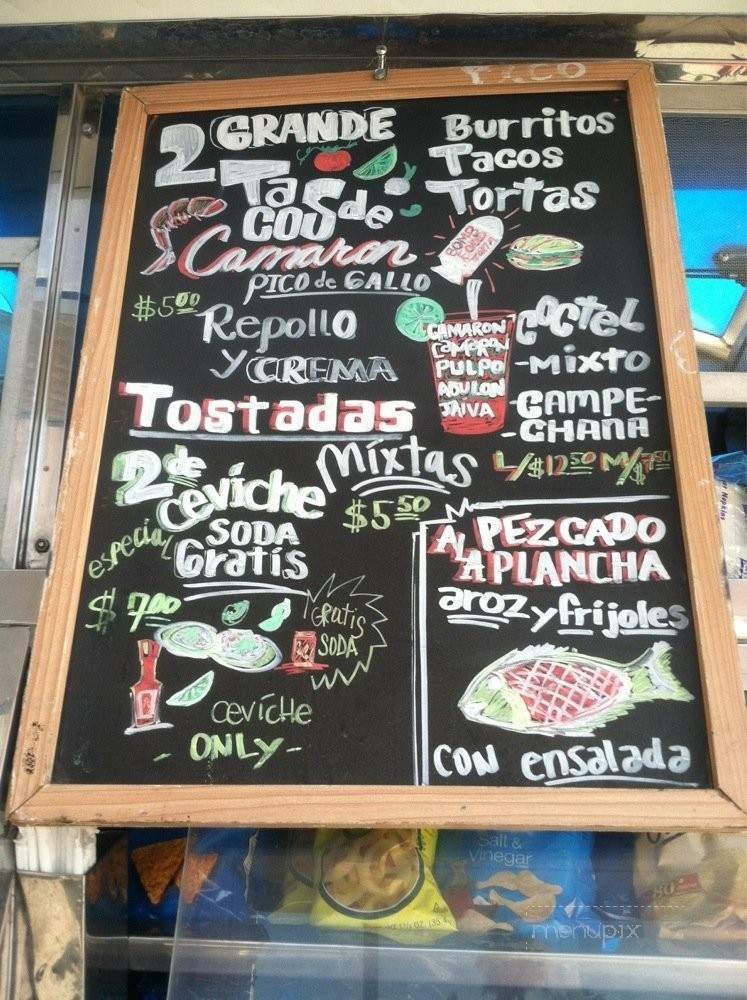 YACO
2 GRANDE
TacoS de
Camaron
PICO de GALLO
$5.00
Repollo
y CREMA
Tostadas
Mixtas
$5.50
2 de
ceviche
especial
SODA
Gratis
$7.00
Gratis
SODA
ceviche
- ONLY -
Burritos
Tacos
Tortas
CAMARON
CAMERON
PULPO
ABULON
JAIVA
COCTEL
-MIXTO
-CAMPE-
-CHANA
L/$12.50 M/$7.50
AL PEZCADO
APLANCHA
aroz y frijoles
CON ensalada
Salt &
Vinegar
menupix